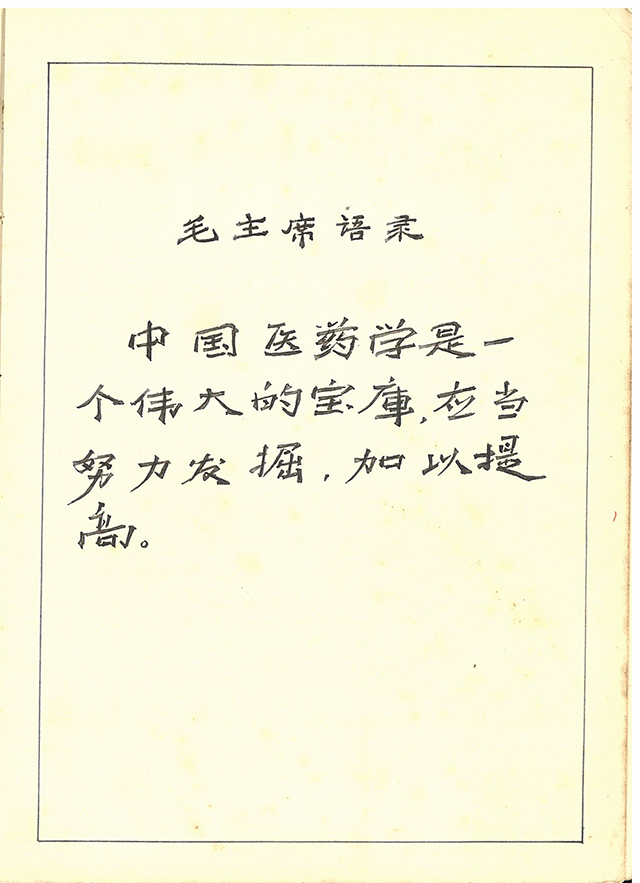 毛主席语录
中国医药学是一
个伟大的宝庫,应当
努力发掘,加以提
高。